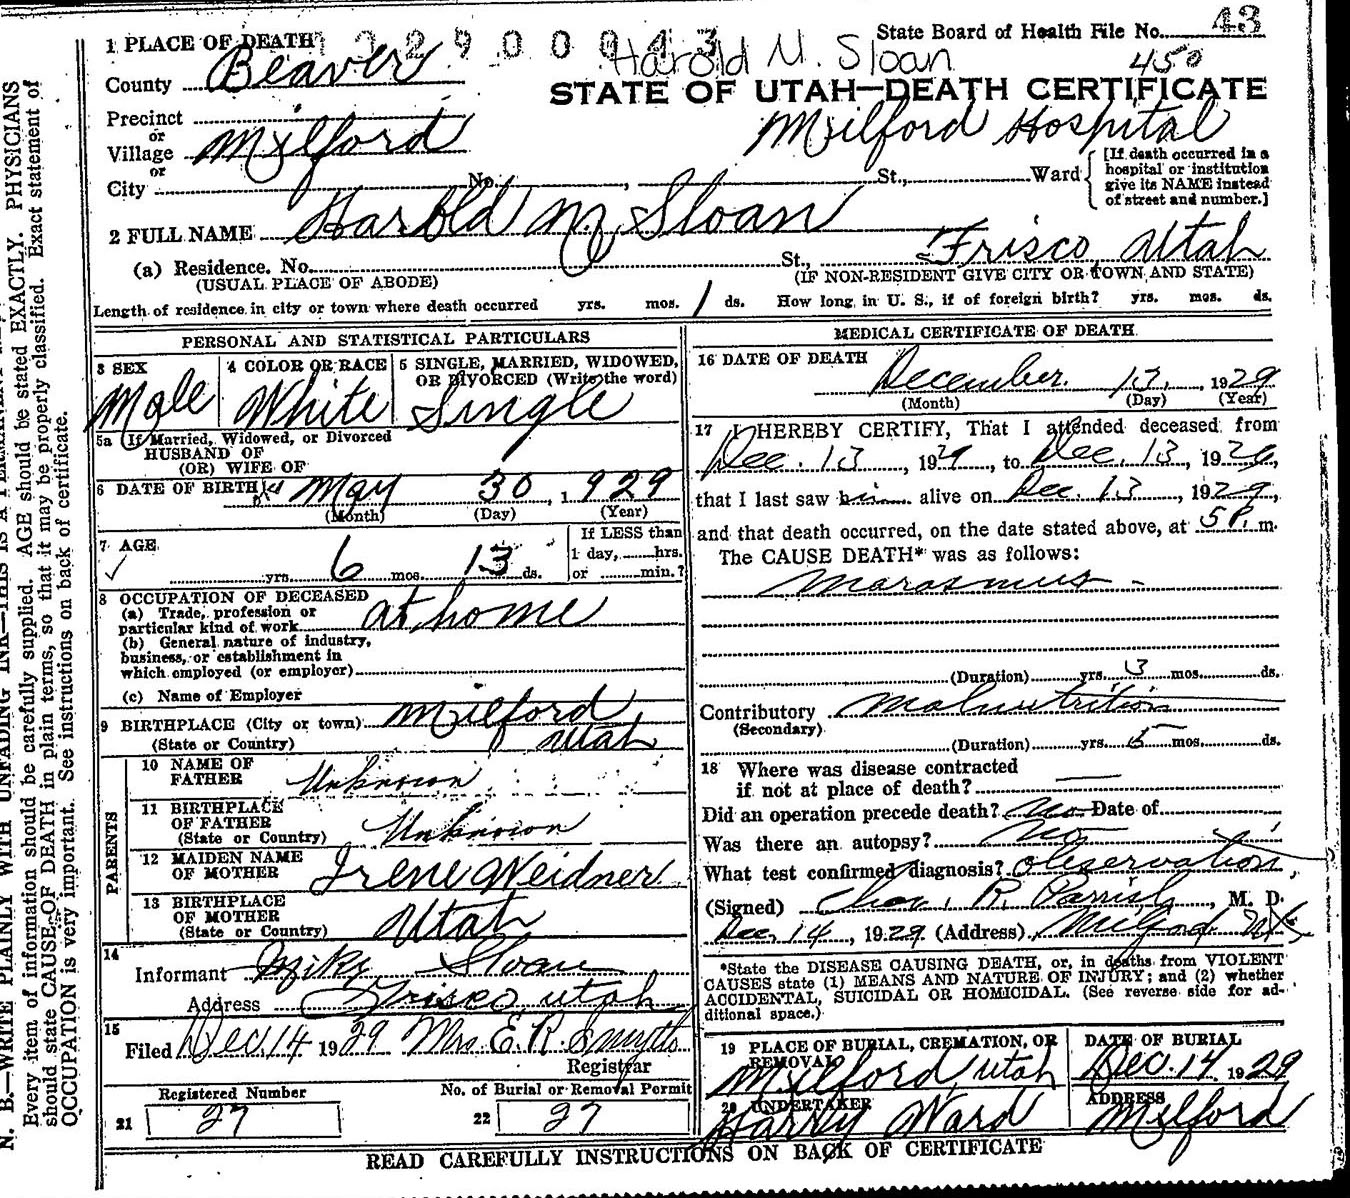 State Board of Health File No. 43
1929000043
Harold M. Sloan
450
1 PLACE OF DEATH
County Beaver
STATE OF UTAH—DEATH CERTIFICATE
Precinct
or
Village Milford
Milford Hospital
or
City No. , St., Ward
[If death occurred in a hospital or institution give its NAME instead of street and number.]
2 FULL NAME Harold M Sloan
(a) Residence. No. St., Frisco, Utah
(USUAL PLACE OF ABODE) (IF NON-RESIDENT GIVE CITY OR TOWN AND STATE)
Length of residence in city or town where death occurred yrs. mos. 1 ds. How long in U. S., if of foreign birth? yrs. mos. ds.
PERSONAL AND STATISTICAL PARTICULARS
3 SEX
Male
4 COLOR OR RACE
White
5 SINGLE, MARRIED, WIDOWED,
OR DIVORCED (Write the word)
Single
5a If Married, Widowed, or Divorced
HUSBAND OF
(OR) WIFE OF
6 DATE OF BIRTH May 30, 1929
(Month) (Day) (Year)
7 AGE
yrs. 6 mos. 13 ds.
If LESS than
1 day, hrs.
or min.?
8 OCCUPATION OF DECEASED
(a) Trade, profession or
particular kind of work at home
(b) General nature of industry,
business, or establishment in
which employed (or employer)
(c) Name of Employer
9 BIRTHPLACE (City or town) Milford
(State or Country) Utah
PARENTS
10 NAME OF
FATHER Unknown
11 BIRTHPLACE
OF FATHER
(State or Country) Unknown
12 MAIDEN NAME
OF MOTHER Irene Weidner
13 BIRTHPLACE
OF MOTHER
(State or Country) Utah
14
Informant Mike Sloan
Address Frisco Utah
15
Filed Dec. 14 1929 Mrs E. R. Smyth
Registrar
Registered Number
21 27
No. of Burial or Removal Permit
22 27
MEDICAL CERTIFICATE OF DEATH
16 DATE OF DEATH
December 13, 1929
(Month) (Day) (Year)
17 I HEREBY CERTIFY, That I attended deceased from
Dec. 13, 1929, to Dec. 13, 1929,
that I last saw him alive on Dec. 13, 1929,
and that death occurred, on the date stated above, at 5 P. m.
The CAUSE DEATH* was as follows:
Marasmus
(Duration) yrs. 3 mos. ds.
Contributory Malnutrition
(Secondary)
(Duration) yrs. 5 mos. ds.
18 Where was disease contracted
if not at place of death?
Did an operation precede death? No Date of
Was there an autopsy? No
What test confirmed diagnosis? Observation
(Signed) Chas. R. Parrish, M. D.
Dec. 14, 1929 (Address) Milford
*State the DISEASE CAUSING DEATH, or, in deaths from VIOLENT
CAUSES state (1) MEANS AND NATURE OF INJURY; and (2) whether
ACCIDENTAL, SUICIDAL OR HOMICIDAL. (See reverse side for ad-
ditional space.)
19 PLACE OF BURIAL, CREMATION, OR
REMOVAL
Milford, Utah
DATE OF BURIAL
Dec. 14 1929
20 UNDERTAKER
Harry Ward
ADDRESS
Milford
READ CAREFULLY INSTRUCTIONS ON BACK OF CERTIFICATE
N. B.—WRITE PLAINLY WITH UNFADING INK—THIS IS A PERMANENT
Every item of information should be carefully supplied. AGE should be stated EXACTLY. PHYSICIANS
should state CAUSE OF DEATH in plain terms, so that it may be properly classified. Exact statement of
OCCUPATION is very important. See instructions on back of certificate.